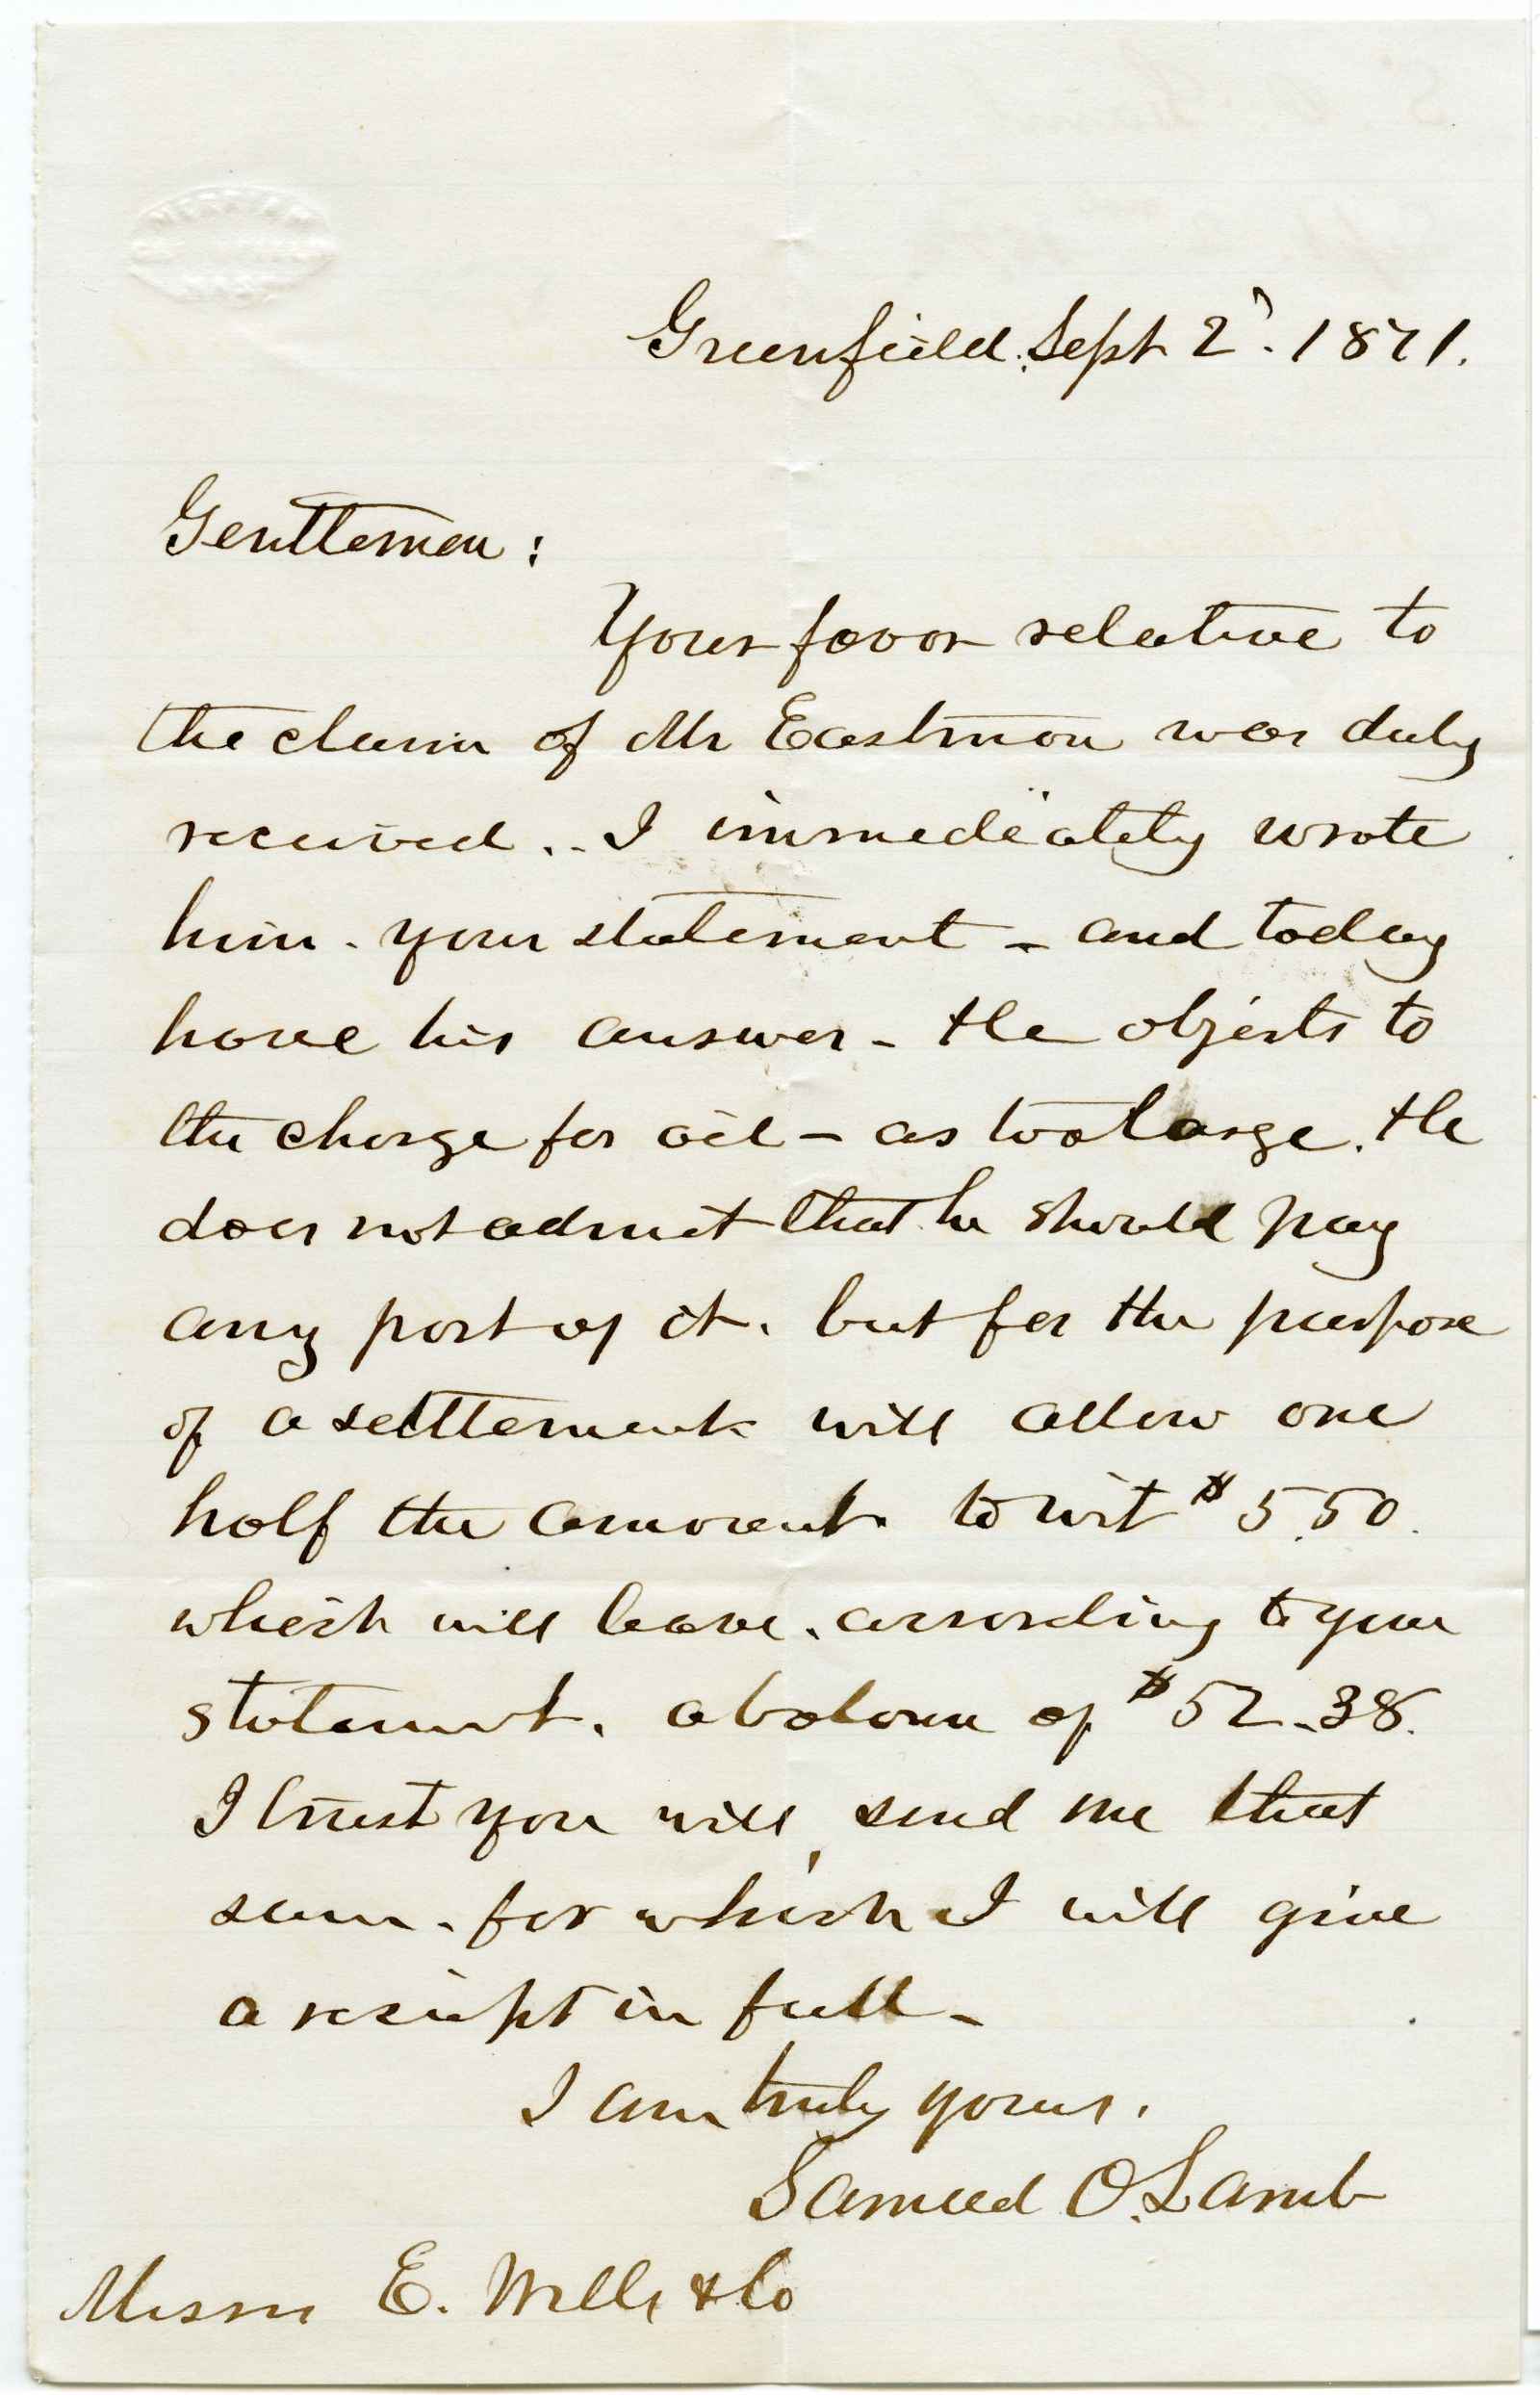 Greenfield. Sept 2d. 1871.
Gentlemen:
Your favor relative to
the claim of Mr Eastman was duly
received.. I immediately wrote
him. your statement - and today
have his answer - He objects to
the charge for oil - as too large. He
does not admit that he should pay
any part of it. but for the purpose
of a settlement will allow one
half the amount. to wit $5.50.
which will leave. according to your
statement. a balance of $52.38.
I trust you will send me that
sum. for which I will give
a receipt in full -
I am truly yours.
Samuel O. Lamb
Messrs E. Wells & Co